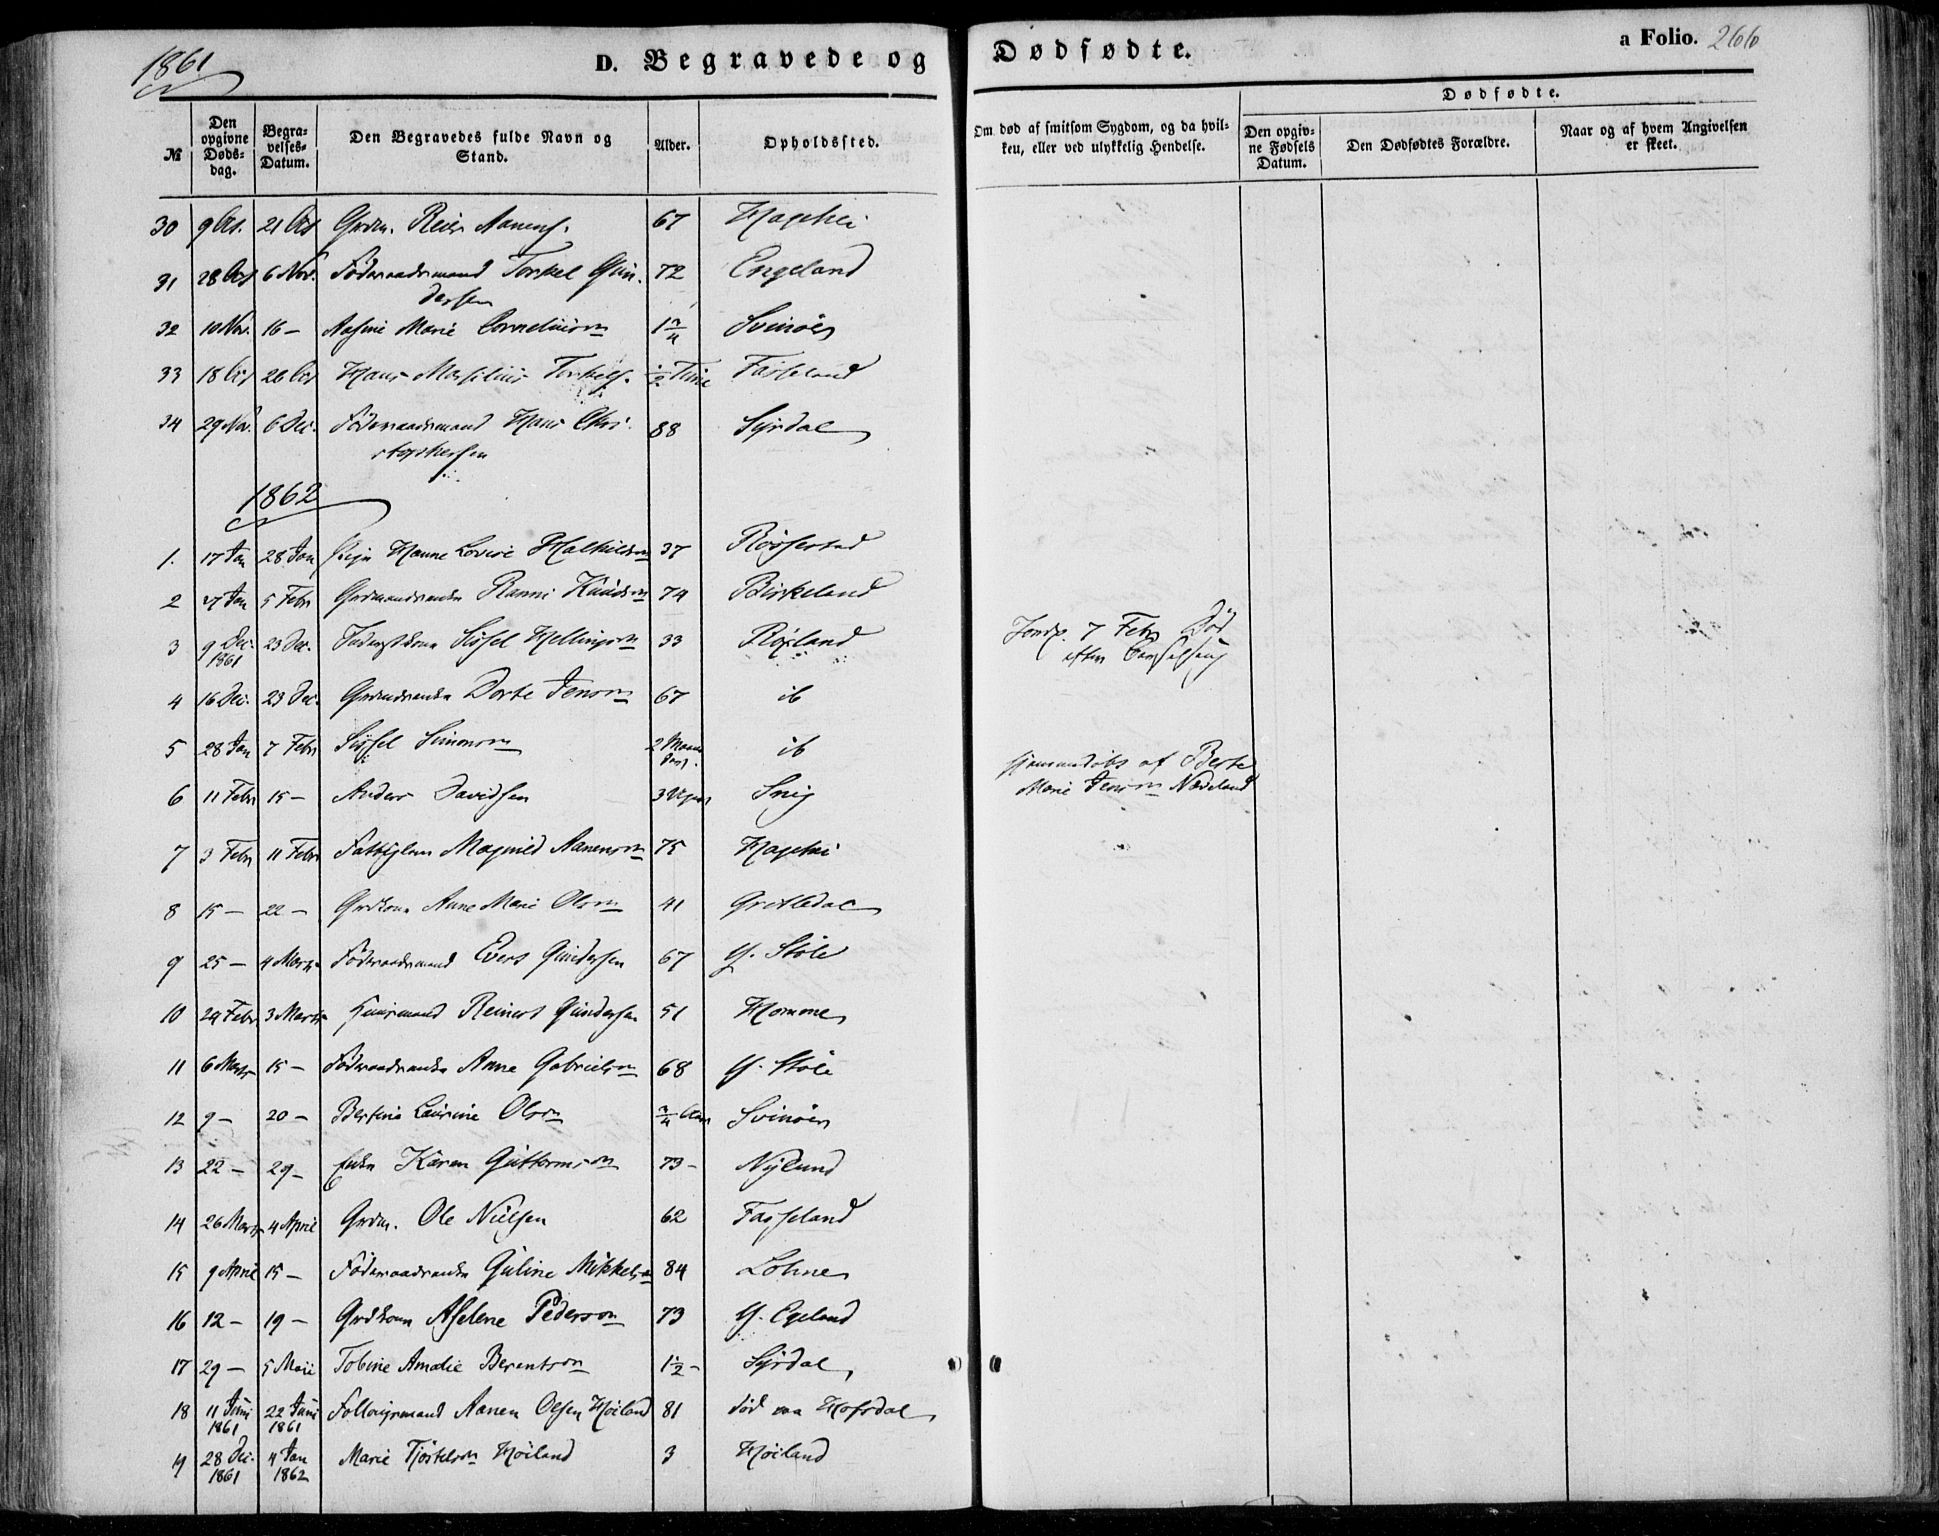 1861
D. Begravede og Dødfødte.
a Folio. 266
№ | Den opgivne Døds-dag. | Begra-velses-Datum. | Den Begravedes fulde Navn og Stand. | Alder. | Opholdssted. | Om død af smitsom Sygdom, og da hvil-ken, eller ved ulykkelig Hendelse. | Dødfødte. | Den opgiv-ne Fødsels Datum. | Den Dødfødtes Forældre. | Naar og af hvem Angivelsen er skeet.
30 9 21 Grdm. Reier Aanens. 67
31 28 6 Nov. Føderaadsmand Torkel Gun-
dersen 72 Engeland
32 10 Nov. 16 – Marie Corneliusdn 1 Svinøer
33 18 26 Hans Torkels. ½ Time Fasseland
34 29 Nov. 6 Dec. Føderaadsmand Hans Chri-
stophersen 88 Syrdal
1862
1. 17 Jan 28 Jan Pige Hanne Lovise 37
2 27 Jan 5 Febr Grdmandsenke Ranni Knudsdn 74 Birkeland
3 9 Dec. 1861 23 Dec. Sissel 33 Røiland 7 Febr Død
efter Barselseng
4 16 Dec. 23 Dec. Grdmdsenke Dorte Jensdn 67 ib
5 28 Jan 7 Febr Sissel Simonsdn 2 ib hjemmedøbt af Berte
Marie Jensdn
6 11 Febr 15 – Anders Davidsen 3 Uger Snig
7 3 Febr 11 Febr Magnild Aanensdn 75
8 15 – 22 – Grdkone Anne Marie Olsdn 41
9 25 – 4 Marts Føderaadsmand Evert Gundersen 67 Y. Støle
10 24 Febr 3 Marts Huusmand Reinert Gundersen 51 Homme
11 6 Marts 15 – Føderaadsenke Anne Gabrielsdn 68 Y. Støle
12 9 – 20 – Bertine Laurine Olsdn Svinøer
13 22 – 29 – Enke Karen Guttormsdn 73 – Nylund
14 26 Marts 4 April Grdm. Ole Nielsen 62 Fasseland
15 9 April 15 – Føderaadsenke Guline Mikkelsdn 84 Lohne
16 12 – 19 – Grdkone Aselene Pedersdn 73 Y. Egeland
17 29 – 5 Maii Tobine Amalie Berentsdn 1½ – Syrdal
18 11 Juni 1861 22 Juni 1861 Aanen Olsen Høiland 81 død paa
19 28 Dec. 1861 4 Jan 1862 Marie Høiland 3 Høiland